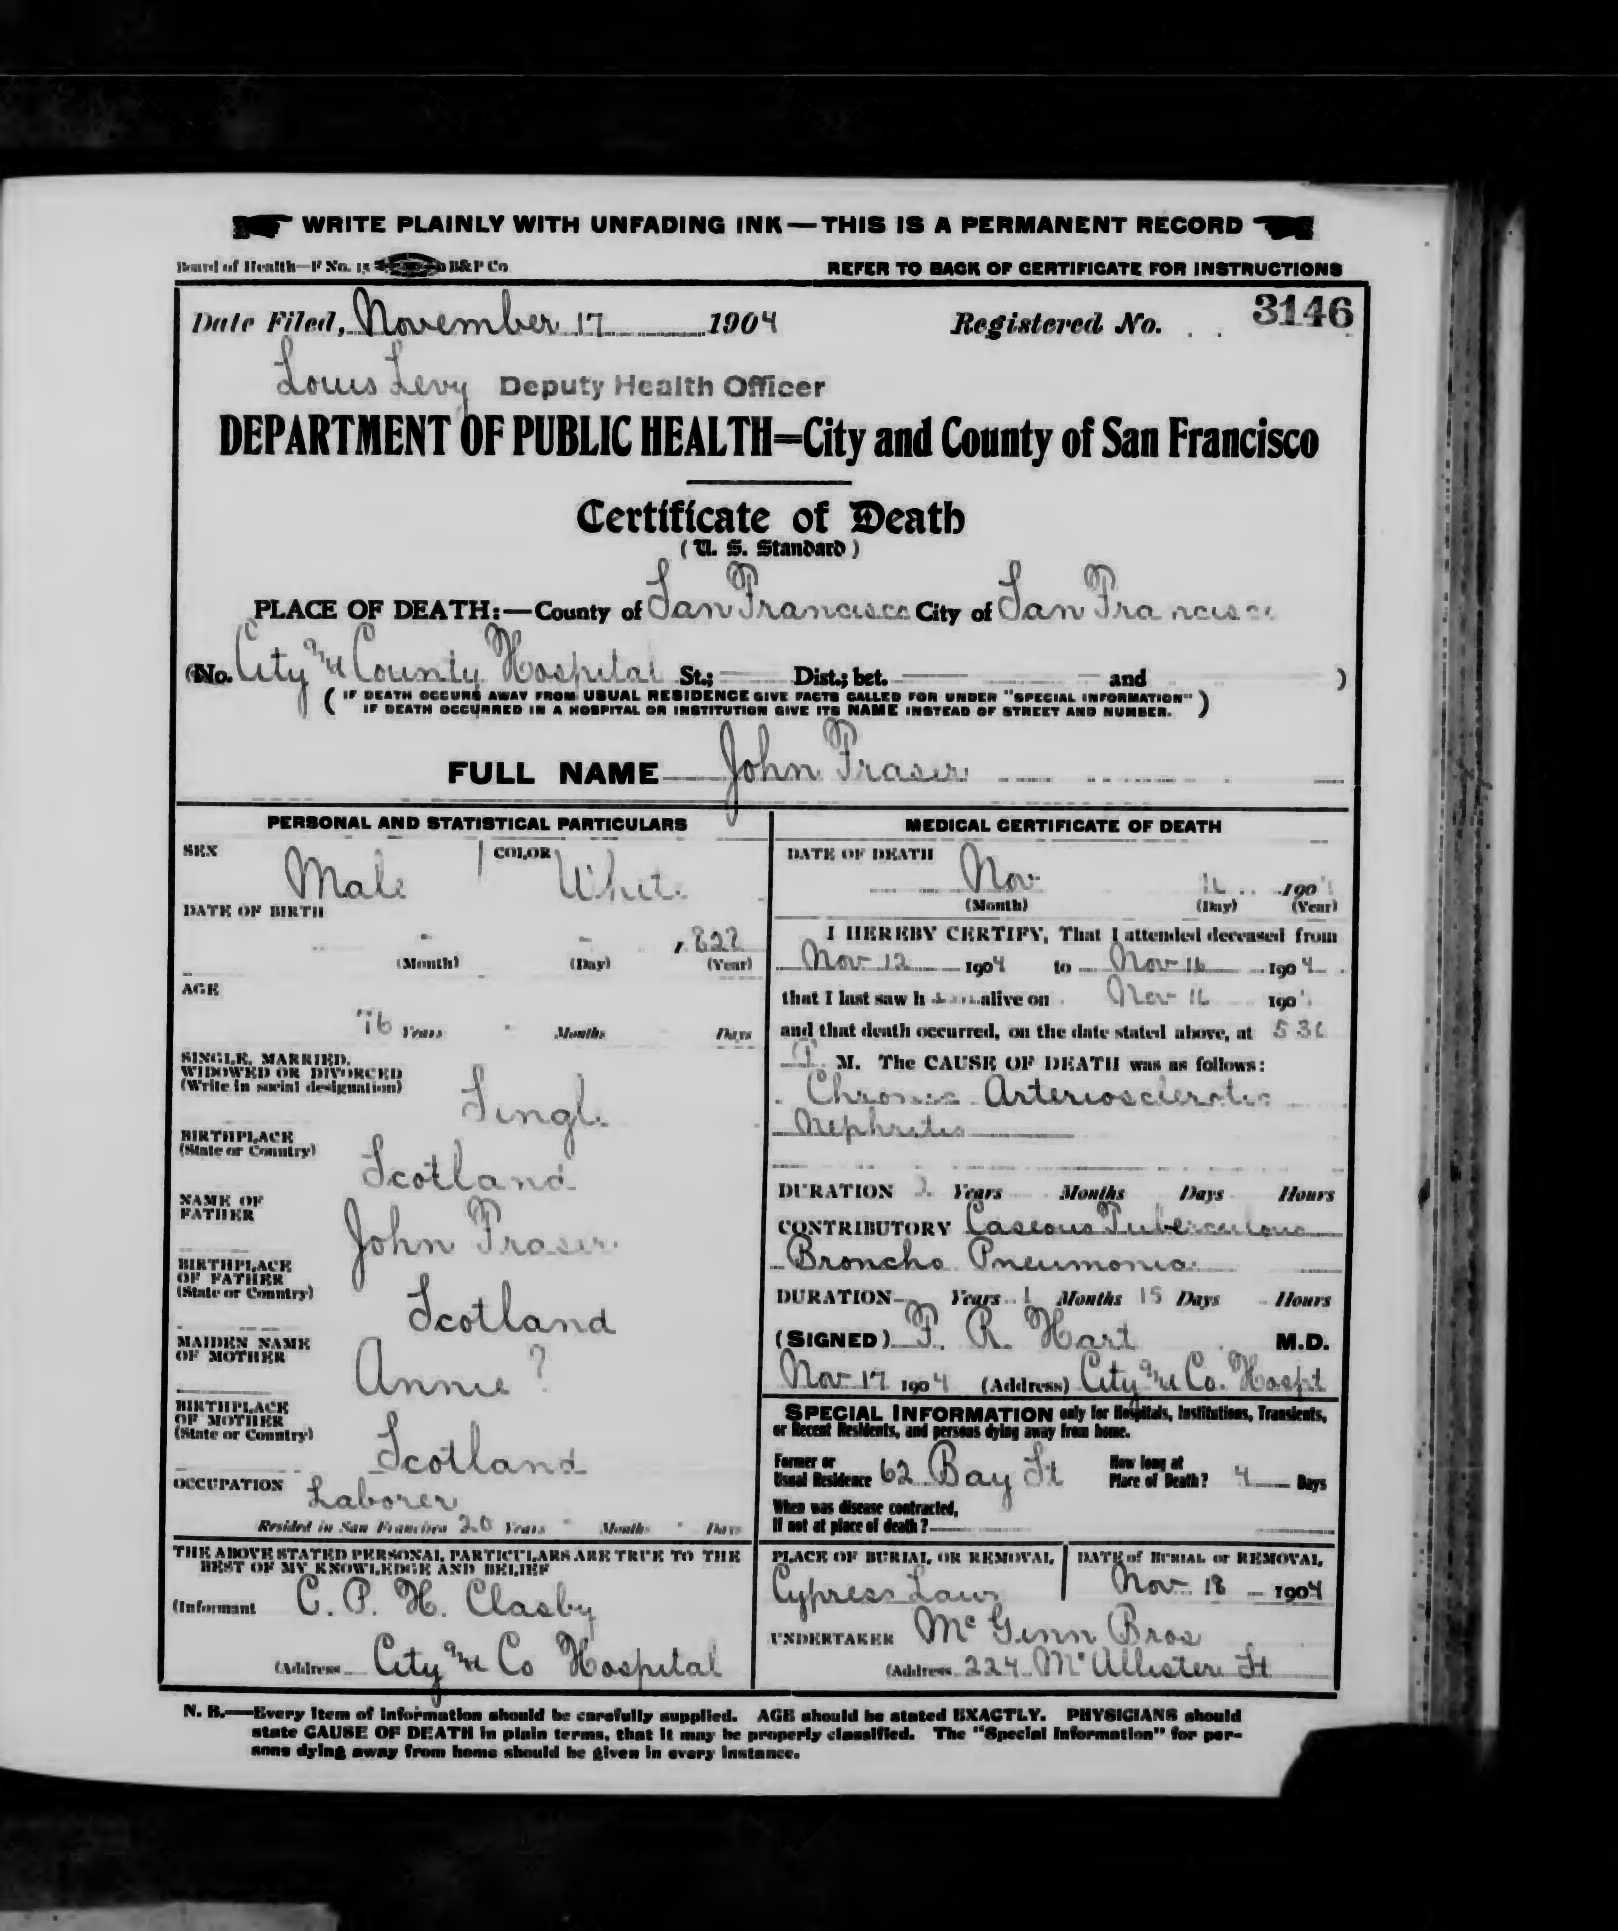 WRITE PLAINLY WITH UNFADING INK—THIS IS A PERMANENT RECORD
Board of Health—F No. 15 B&P Co
REFER TO BACK OF CERTIFICATE FOR INSTRUCTIONS
Date Filed, November 17 1904 Registered No. 3146
Louis Levy Deputy Health Officer
DEPARTMENT OF PUBLIC HEALTH=City and County of San Francisco
Certificate of Death
(U. S. Standard)
PLACE OF DEATH:—County of San Francisco City of San Francisco
(No. City and County Hospital St.; Dist.; bet. and )
( IF DEATH OCCURS AWAY FROM USUAL RESIDENCE GIVE FACTS CALLED FOR UNDER "SPECIAL INFORMATION"
IF DEATH OCCURRED IN A HOSPITAL OR INSTITUTION GIVE ITS NAME INSTEAD OF STREET AND NUMBER. )
FULL NAME John Fraser
PERSONAL AND STATISTICAL PARTICULARS
SEX Male COLOR White
DATE OF BIRTH
1828
(Month) (Day) (Year)
AGE
76 Years Months Days
SINGLE, MARRIED,
WIDOWED OR DIVORCED
(Write in social designation) Single
BIRTHPLACE
(State or Country) Scotland
NAME OF
FATHER John Fraser
BIRTHPLACE
OF FATHER
(State or Country) Scotland
MAIDEN NAME
OF MOTHER Annie ?
BIRTHPLACE
OF MOTHER
(State or Country) Scotland
OCCUPATION Laborer
Resided in San Francisco 20 Years Months Days
THE ABOVE STATED PERSONAL PARTICULARS ARE TRUE TO THE
BEST OF MY KNOWLEDGE AND BELIEF
(Informant C. P. H. Clasby
(Address City and Co Hospital
MEDICAL CERTIFICATE OF DEATH
DATE OF DEATH Nov 16 1904
(Month) (Day) (Year)
I HEREBY CERTIFY, That I attended deceased from
Nov 12 1904 to Nov 16 1904
that I last saw h alive on Nov 16 190
and that death occurred, on the date stated above, at 530
P. M. The CAUSE OF DEATH was as follows:
Chronic Arteriosclerotic
Nephritis
DURATION Years Months Days Hours
CONTRIBUTORY Caseous Tuberculous
Broncho Pneumonia
DURATION Years 1 Months 15 Days Hours
(SIGNED) F. R. Hart M.D.
Nov 17 1904 (Address) City and Co. Hospt
SPECIAL INFORMATION only for Hospitals, Institutions, Transients,
or Recent Residents, and persons dying away from home.
Former or
Usual Residence 62 Bay St
How long at
Place of Death? 4 Days
When was disease contracted,
If not at place of death?
PLACE OF BURIAL OR REMOVAL
Cypress Lawn
DATE of BURIAL or REMOVAL
Nov 18 1904
UNDERTAKER McGinn Bros
(Address 224 McAllister St
N. B.—Every item of information should be carefully supplied. AGE should be stated EXACTLY. PHYSICIANS should
state CAUSE OF DEATH in plain terms, that it may be properly classified. The "Special Information" for per-
sons dying away from home should be given in every instance.